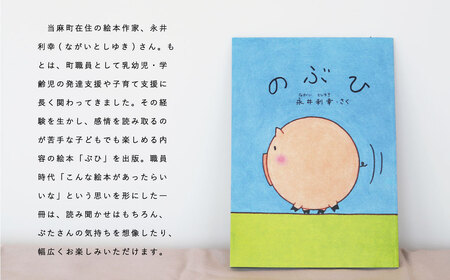 当麻町在住の絵本作家、永井
利幸（ながいとしゆき）さん。も
とは、町職員として乳幼児・学
齢児の発達支援や子育て支援に
長く関わってきました。その経
験を生かし、感情を読み取るの
が苦手な子どもでも楽しめる内
容の絵本「ぶひ」を出版。職員
時代「こんな絵本があったらい
いな」という思いを形にした一
冊は、読み聞かせはもちろん、
ぶたさんの気持ちを想像したり、
幅広くお楽しみいただけます。
のぶひ
ながい としゆき
永井利幸・さく